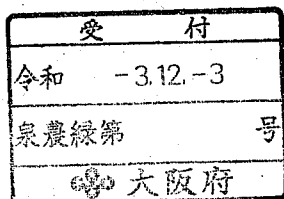 受付
令和 -3.12.-3
泉農緑第 号
大阪府